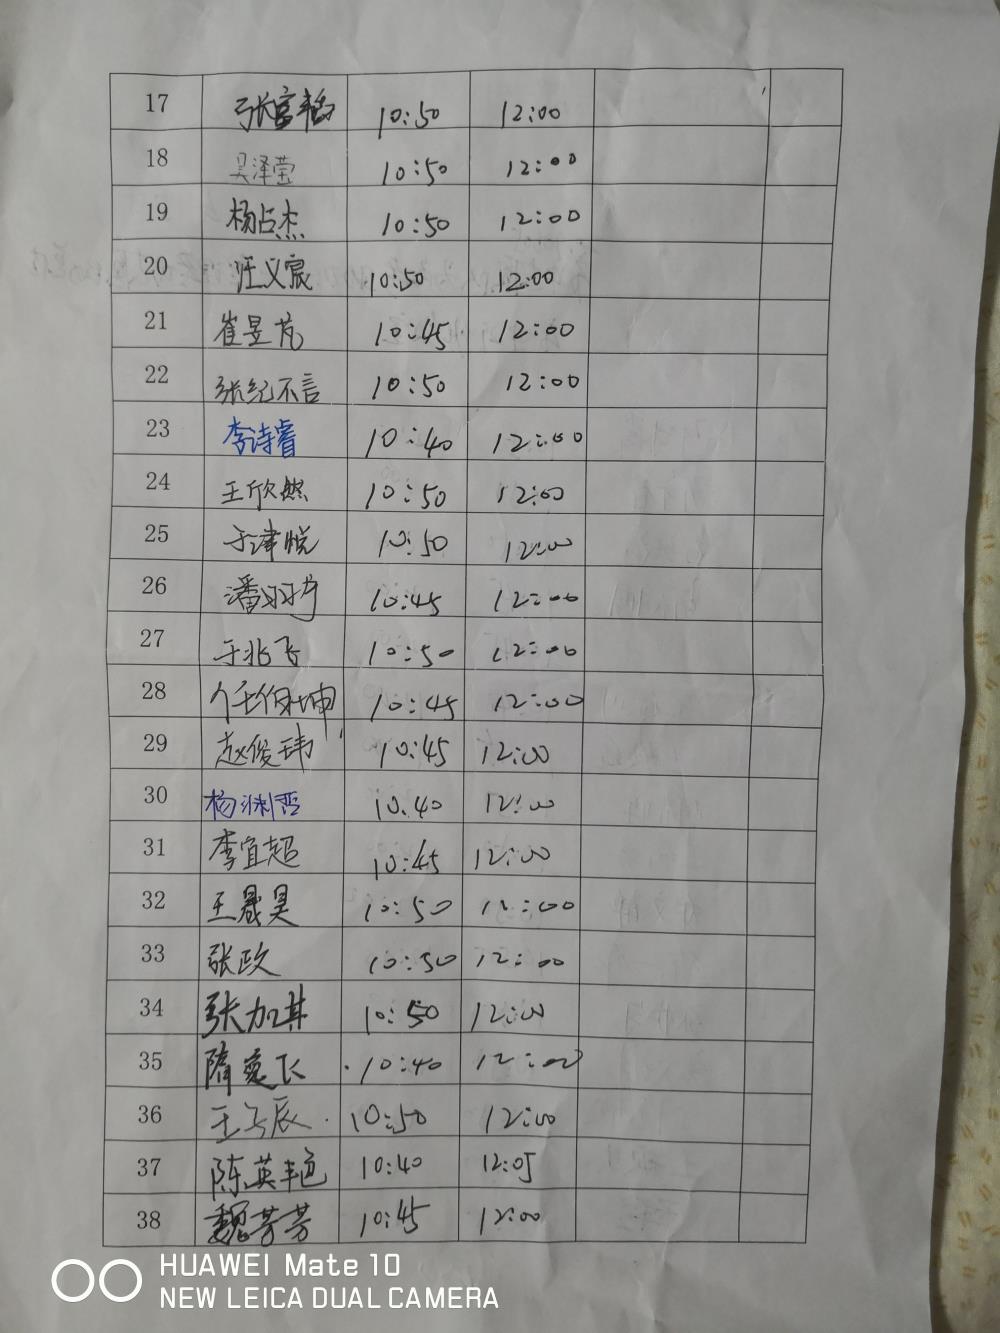 17 张富韬 10:50 12:00
18 吴泽莹 10:50 12:00
19 杨占杰 10:50 12:00
20 汪义宸 10:50 12:00
21 崔昱芃 10:45 12:00
22 张纪不言 10:50 12:00
23 李诗睿 10:40 12:00
24 王欣然 10:50 12:00
25 于津悦 10:50 12:00
26 潘羽 10:45 12:00
27 于兆飞 10:50 12:00
28 任伯坤 10:45 12:00
29 赵俊玮 10:45 12:00
30 杨渊哲 10:40 12:00
31 李宜超 10:45 12:00
32 王晟昊 10:50 12:00
33 张政 10:50 12:00
34 张加其 10:50 12:00
35 隋 飞 10:40 12:00
36 王 辰 10:50 12:00
37 陈英艳 10:40 12:05
38 魏芳芳 10:45 12:00
HUAWEI Mate 10
NEW LEICA DUAL CAMERA